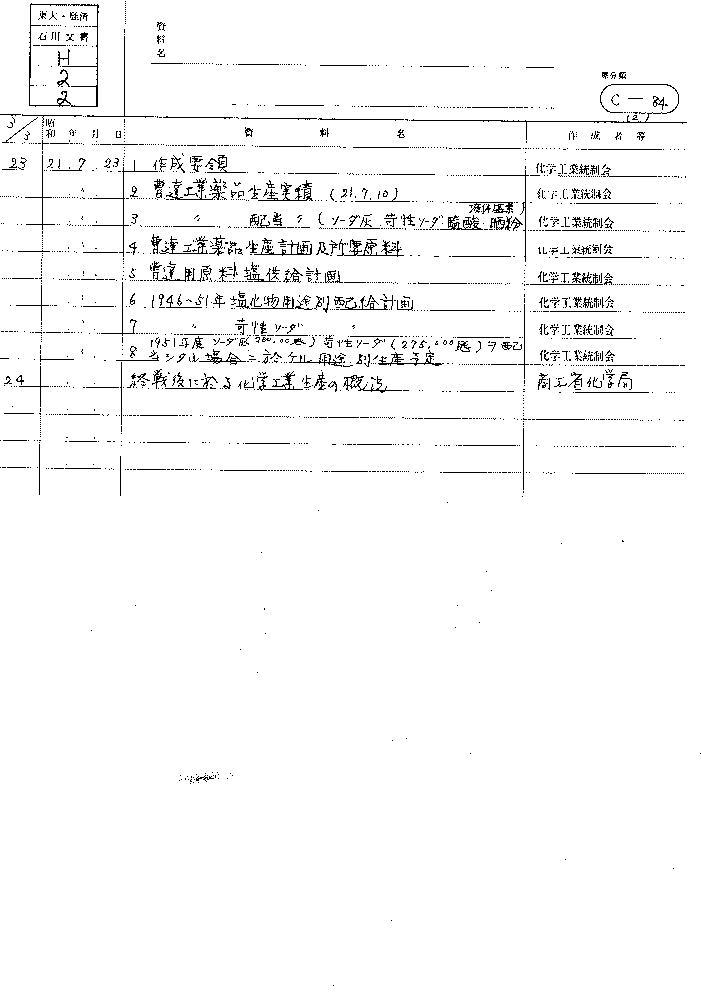 東大・経済
石川文書
H
2
2
資料名
原分類
C — 84
(2)
3/3 昭和 年 月 日 資料名 作成者等
23 21.7.23 1 作成要領 化学工業統制会
〃 2 曹達工業薬品生産実績 (21.7.10) 化学工業統制会
液体塩素)
〃 3 〃 配当 〃 (ソーダ灰 苛性ソーダ 硫酸・晒粉 化学工業統制会
〃 4 曹達工業薬品生産計画及所要原料 化学工業統制会
〃 5 曹達用原料塩供給計画 化学工業統制会
〃 6 1946~51年塩化物用途別配給計画 化学工業統制会
〃 7 〃 苛性ソーダ 〃 化学工業統制会
1951年度 ソーダ灰 ) 苛性ソーダ (275,000瓲) ヲ配
〃 8 当シタル場合ニ於ケル用途別生産予定 化学工業統制会
24 終戦後に於る化学工業生産の概況 商工省化学局